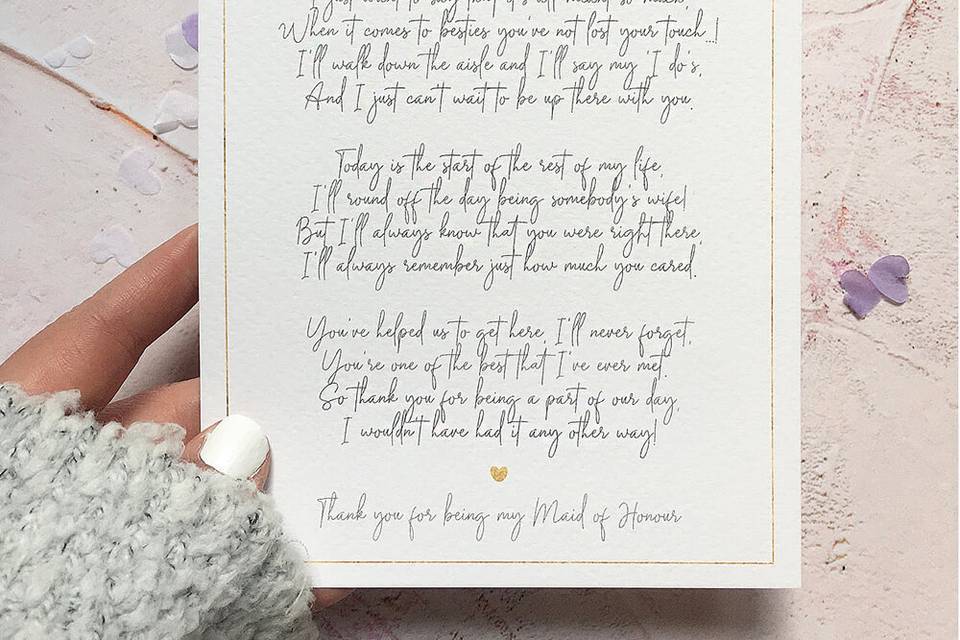 I just want to say that it's all meant so much,
When it comes to besties you've not lost your touch...!
I'll walk down the aisle and I'll say my 'I do's,
And I just can't wait to be up there with you.
Today is the start of the rest of my life,
I'll round off the day being somebody's wife!
But I'll always know that you were right there,
I'll always remember just how much you cared.
You've helped us to get here, I'll never forget,
You're one of the best that I've ever met.
So thank you for being a part of our day,
I wouldn't have had it any other way!
Thank you for being my Maid of Honour